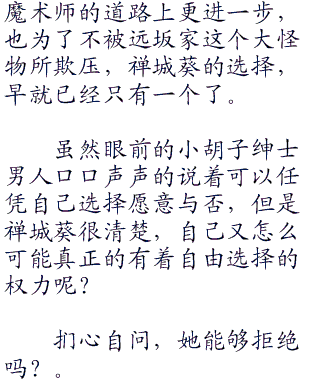 魔术师的道路上更进一步，
也为了不被远坂家这个大怪
物所欺压，禅城葵的选择，
早就已经只有一个了。
虽然眼前的小胡子绅士
男人口口声声的说着可以任
凭自己选择愿意与否，但是
禅城葵很清楚，自己又怎么
可能真正的有着自由选择的
权力呢？
扪心自问，她能够拒绝
吗？。